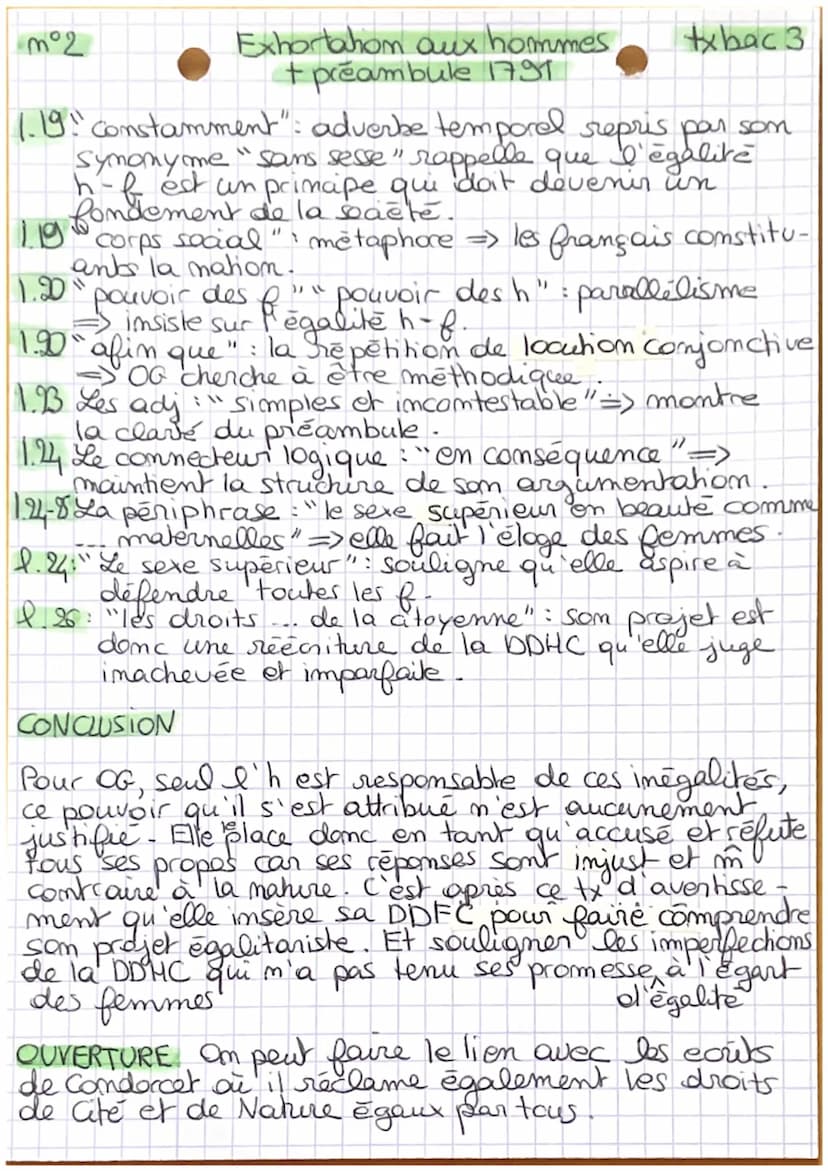 n°2 Exhortation aux hommes tx bac 3
+ préambule 1791
l.19 "constamment": adverbe temporel repris par son
synonyme "sans sesse" rappelle que l'égalité
h-f est un principe qui doit devenir un
fondement de la société.
l.19 "corps social": métaphore => les français constitu-
ants la nation.
l.20 "pouvoir des f" "pouvoir des h": parallélisme
=> insiste sur l'égalité h-f.
l.20 "afin que": la répétition de locution conjonctive
=> OG cherche à être méthodique.
l.23 Les adj: "simples et incontestable" => montre
la clarté du préambule.
l.24 Le connecteur logique: "en conséquence" =>
maintient la structure de son argumentation.
l.24-8 La périphrase: "le sexe supérieur en beauté comme
... maternelles" => elle fait l'éloge des femmes.
l.24: "Le sexe supérieur": souligne qu'elle aspire à
défendre toutes les f.
l.26: "les droits ... de la citoyenne": son projet est
donc une réécriture de la DDHC qu'elle juge
inachevée et imparfaite.
CONCLUSION
Pour OG, seul l'h est responsable de ces inégalités,
ce pouvoir qu'il s'est attribué n'est aucunement
justifié. Elle le place donc en tant qu'accusé et réfute
tous ses propos car ses réponses sont injust et m̂
contraire à la nature. C'est après ce tx d'avertisse-
ment qu'elle insère sa DDFC pour faire comprendre
son projet égalitariste. Et souligner les imperfections
de la DDHC qui n'a pas tenu ses promesse ^ à l'égart
des femmes d'égalité
OUVERTURE On peut faire le lien avec les ecrits
de Condorcet où il réclame également les droits
de Cité et de Nature égaux par tous.